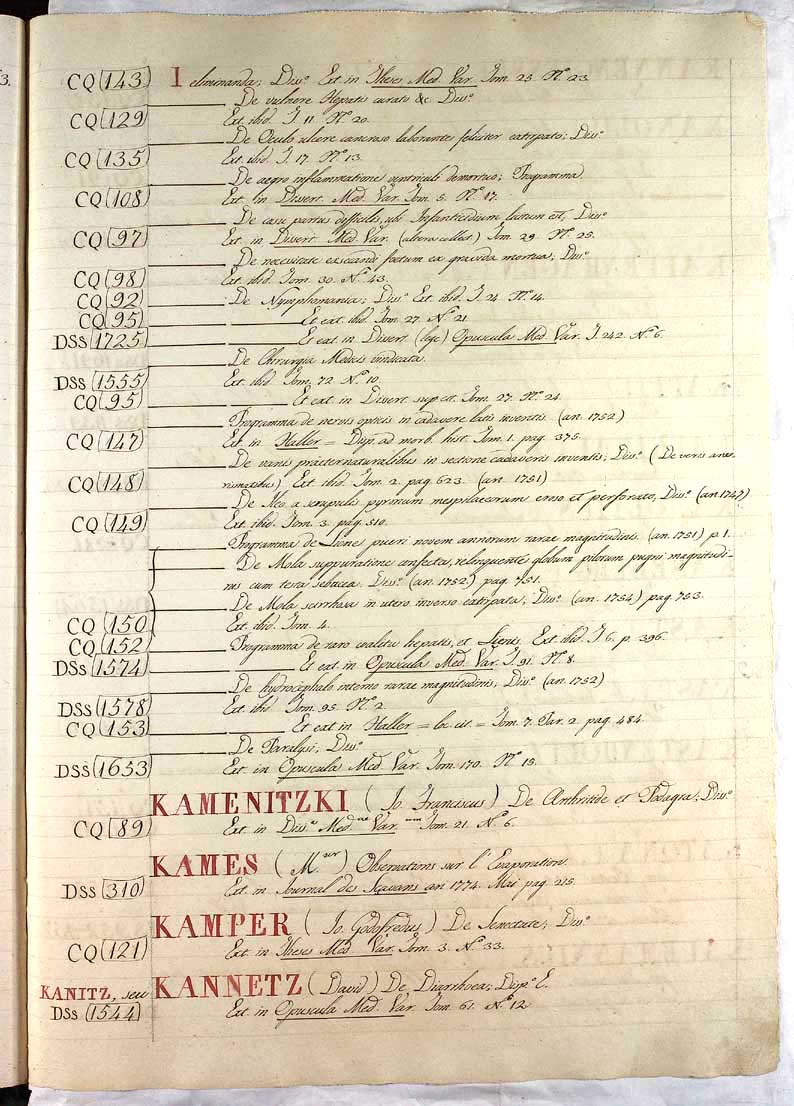 3.
CQ (143) I eliminanda; Diss.o Ext. in Theses Med. Var. Tom. 23. N.o 23.
De vulnere Hepatis curato &c. Diss.o
CQ (129) Ext. ibid. T. 11. N.o 20.
De Oculo ulcere canceroso laborante feliciter extirpato; Diss.o
CQ (135) Ext. ibid. T. 17. N.o 13.
De aegro inflammatione ventriculi demortuo; Programma.
CQ (108) Ext. in Dissert. Med. Var. Tom. 5. N.o 17.
De casu partus difficilis, ubi Infanticidium factum est, Diss.o
CQ (97) Ext. in Dissert. Med. Var. (altera collect.) Tom. 29. N.o 25.
De necessitate exsecandi foetum ex gravida mortua; Diss.o
CQ (98) Ext. ibid. Tom. 30. N.o 43.
CQ (92) De Nymphomania; Diss.o Ext. ibid. T. 24. N.o 14.
CQ (95) Et ext. ibid. Tom. 27. N.o 21.
DSs (1725) Et ext. in Dissert. Opuscula Med. Var. T. 242. N.o 6.
De Chirurgia Medicis vindicata.
DSs (1555) Ext. ibid. Tom. 72. N.o 10.
CQ (95) Et ext. in Dissert. sup. cit. Tom. 27. N.o 24.
Programma de nervis opticis in cadavere latis inventis. (an. 1752)
CQ (147) Ext. in Haller = Disp. ad morb. hist. Tom. 1. pag. 375.
De variis praeternaturalibus in sectione cadaveris inventis; Diss.o (De veris aneu-
CQ (148) rismatibus) Ext. ibid. Tom. 2. pag. 623. (an. 1751)
De Ileo a scrupulis pyrorum mespilaceorum eroso et perforato, Diss.o (an. 1747)
CQ (149) Ext. ibid. Tom. 3. pag. 510.
Programma de Liene pueri novem annorum rarae magnitudinis. (an. 1751) p. 1.
De Mola suppuratione confecta, relinquente globum pilorum pugni magnitudi-
nis cum testa sebacea. Diss.o (an. 1752) pag. 751.
De Mola scirrhosa in utero inverso extirpata; Diss.o (an. 1754) pag. 753.
CQ (150) Ext. ibid. Tom. 4.
CQ (152) Programma de raro coalitu hepatis, et Lienis. Ext. ibid. T. 6. p. 396.
DSs (1574) Et ext. in Opuscula Med. Var. T. 91. N.o 8.
De hydrocephalo interno rarae magnitudinis, Diss.o (an. 1752)
DSs (1578) Ext. ibid. Tom. 95. N.o 2.
CQ (153) Et ext. in Haller = loc. cit. = Tom. 7. Par. 2. pag. 484.
De Paralysi; Diss.o
DSs (1653) Ext. in Opuscula Med. Var. Tom. 170. N.o 15.
KAMENITZKI (Jo. Franciscus) De Arthritide et Podagra; Diss.o
CQ (89) Ext. in Diss.s Med.ae Var.um Tom. 21. N.o 6.
KAMES (M.eur) Observations sur l'Evaporation.
DSs (310) Ext. in Journal des Scavans an 1774. Mai pag. 215.
KAMPER (Jo. Godofredus) De Senectute; Diss.o
CQ (121) Ext. in Theses Med. Var. Tom. 3. N.o 33.
KANITZ, seu KANNETZ (David) De Diarrhoea; Disp.o E.
DSs (1544) Ext. in Opuscula Med. Var. Tom. 61. N.o 12.